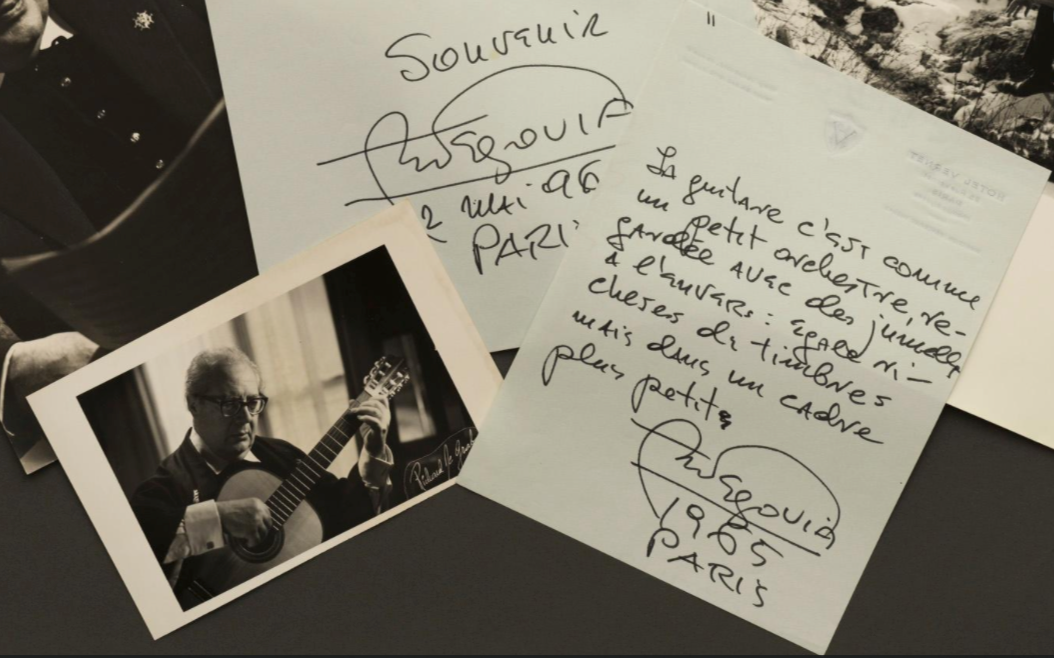 Souvenir
Andrés Segovia
2 mai 86
PARI
La guitare c'est comme
un petit orchestre, re-
gardée avec des jumelles
à l'envers: égale ri-
chesses de timbres
mais dans un cadre
plus petit
Andrés Segovia
1985
PARIS
HOTEL